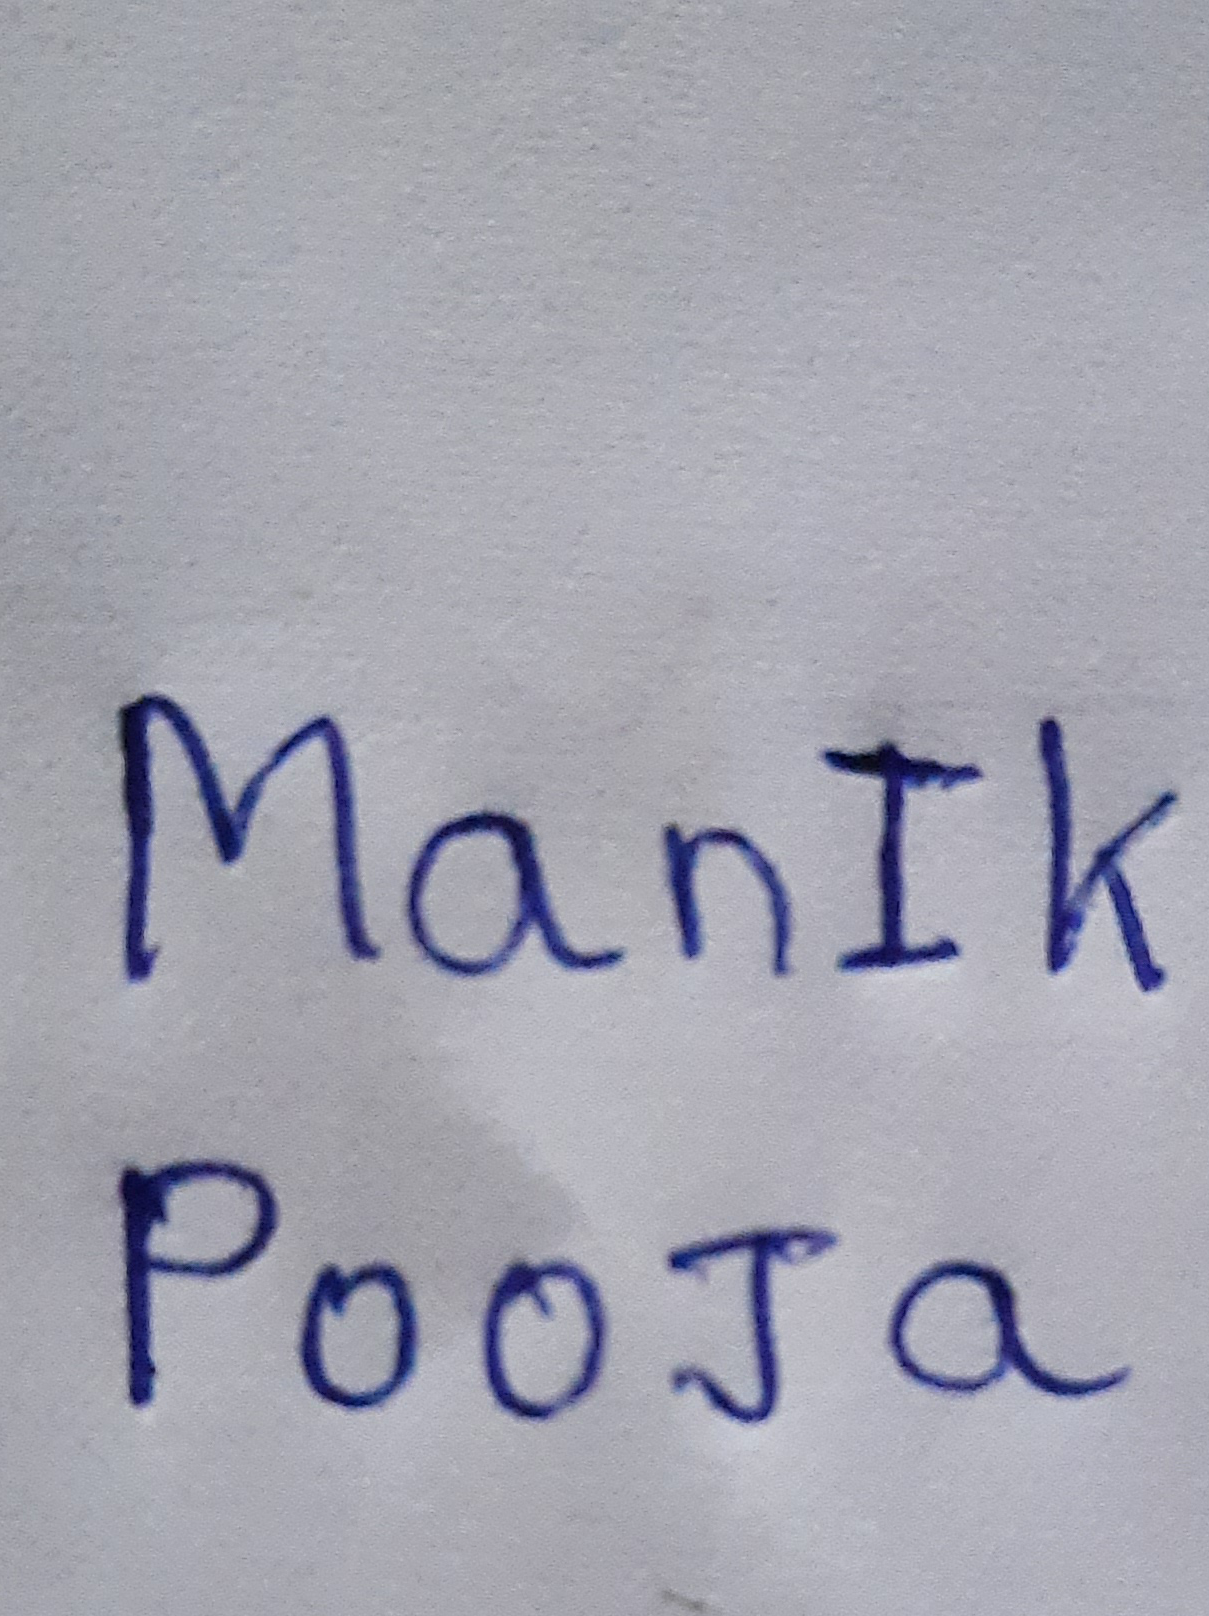 ManIk
PooJa